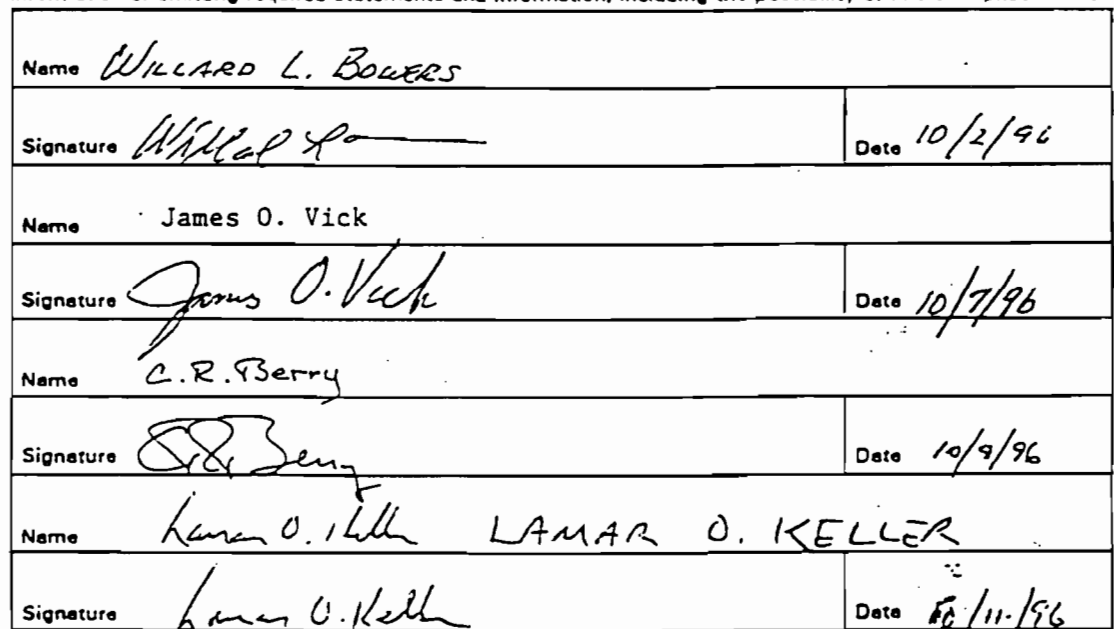 Name WILLARD L. BOWERS
Signature Date 10/2/96
Name James O. Vick
Signature James O. Vick Date 10/7/96
Name C.R. Berry
Signature CR Berry Date 10/9/96
Name Lamar O. Keller LAMAR O. KELLER
Signature Lamar O. Keller Date 10/11/96